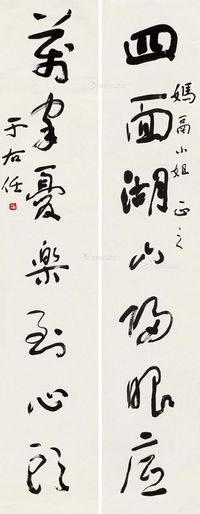 四面湖山歸眼底
小姐 正之
萬家憂樂到心頭
于右任